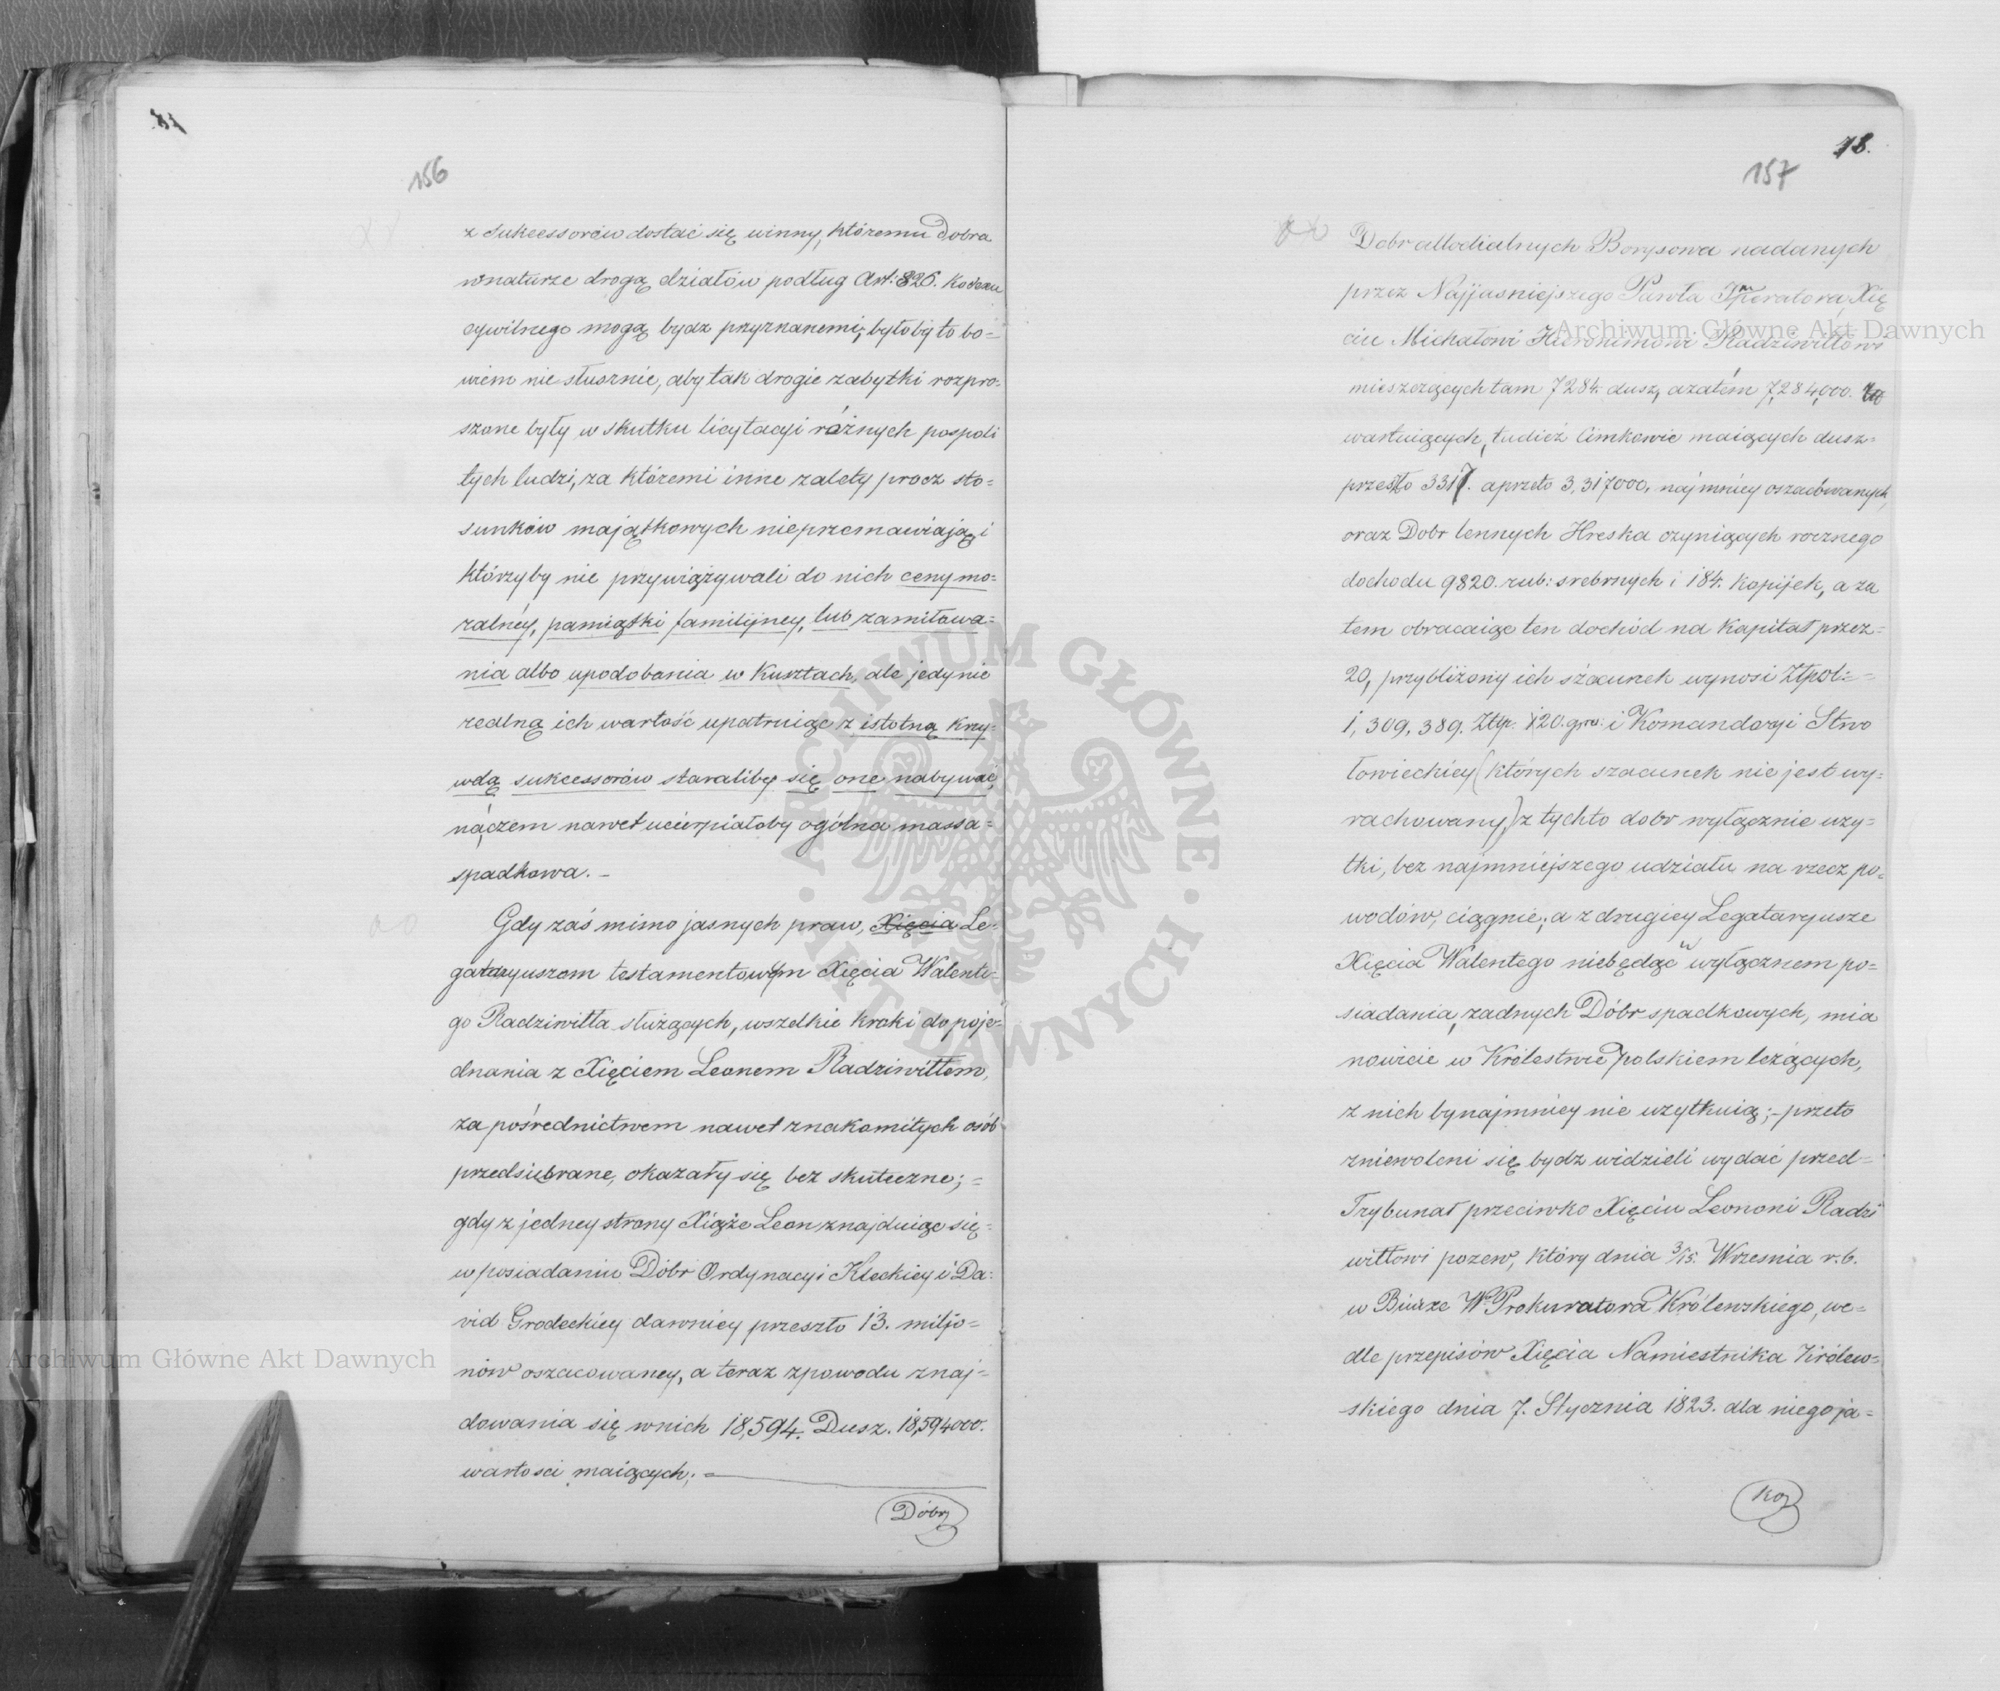 156
z Sukcessorów dostać się winny, któremu Dobra
w naturze drogą działów podług Art: 826. Kodexu
cywilnego mogą bydz przyznanemi; byłoby to bo=
wiem nie słusznie, aby tak drogie zabytki rozpro=
szone były w skutku licytacyi różnych pospoli
tych ludzi, za któremi inne zalety procz sto=
sunków majątkowych nieprzemawiają i
którzyby nie przywiązywali do nich ceny mo=
ralnéy, pamiątki familijney, lub zamiłowa=
nia albo upodobania w Kusztach, ale jedynie
realną ich wartość upatruiąc z istotną krzy=
wdą sukcessorów staraliby się one nabywać,
náczem nawet ucierpiałoby ogólna massa=
spadkowa. –
Gdy zaś mimo jasnych praw, Xięcia Le=
gataryuszom testamentowym Xięcia Walente=
go Radziwiłła służących, wszelkie kroki do poje=
dnania z Xięciem Leonem Radziwiłłem,
za pośrednictwem nawet znakomitych osób
przedsiębrane, okazały się bez skuteczne; =
gdy z jedney strony Xiąże Leon znajduiąc się=
w posiadaniu Dóbr Ordynacyi Kleckiey i Da=
vid Grodeckiey dawniey przeszło 13. miljo=
nów oszacowaney, a teraz z powodu znaj=
dowania się w nich 18,594. Dusz. 18,594000.
wartości maiących; =
Dóbr
78.
157
Dobr allodialnych Borysowa nadanych
przez Najjasniejszego Pawła Imperatora, Xię
ciu Michałowi Hieronimowi Radziwiłłowi
mieszczących tam 7284. dusz, a zatém 7,284,000. Złł
wartuiących, tudież Cimkowic maiących dusz=
przeszło 3317. a przeto 3,317000, najmniey oszacowanych,
oraz Dobr lennych Hreska czyniących rocznego
dochodu 9820. rub: srebrnych i 184. Kopijek, a za
tem obracaiąc ten dochód na Kapitał przez=
20, przybliżony ich szacunek wynosi Złpol: =
1,309,389. Złp. 20. gro: i Komandoryi Stwo
łowieckiey (których szacunek nie jest wy=
rachowany) z tychto dobr wyłącznie uzy=
tki, bez najmniejszego udziału na rzecz po=
wodów, ciągnie; a z drugiey Legataryusze
Xięcia Walentego niebędąc w wyłącznem po=
siadaniu żadnych Dóbr spadkowych, mia
nowicie w Królestwie Polskiem leżących,
z nich bynajmniey nie uzytkuią; – przeto
zniewoleni się bydz widzieli wydać przed=
Trybunał przeciwko Xięciu Leonowi Radzi
wiłłowi pozew, który dnia 3/15. Wrzesnia r. b.
w Biurze W. Prokuratora Królewskiego, we=
dle przepisów Xięcia Namiestnika Królew=
skiego dnia 7. Stycznia 1823. dla niego ja=
ko
Archiwum Główne Akt Dawnych
Archiwum Główne Akt Dawnych
· ARCHIWUM GŁÓWNE · AKT DAWNYCH